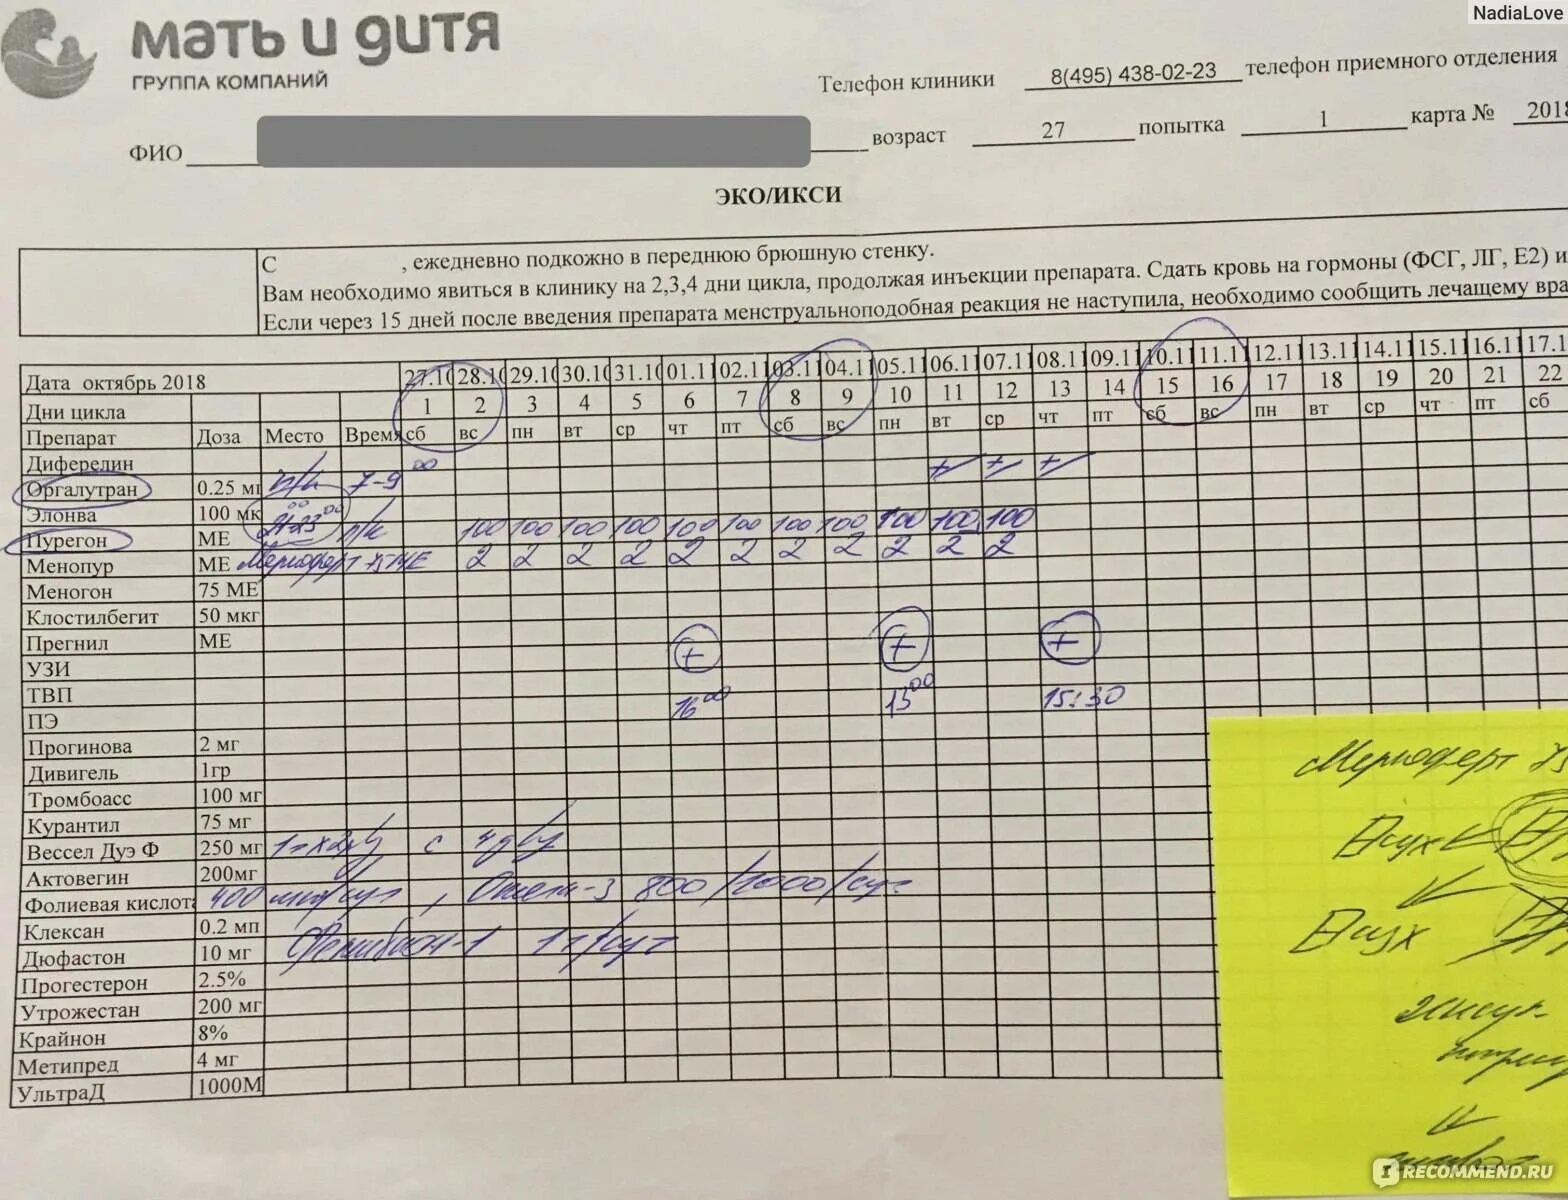 NadiaLove
мать и дитя
ГРУППА КОМПАНИЙ
Телефон клиники 8(495) 438-02-23 телефон приемного отделения
ФИО возраст 27 попытка 1 карта № 2018
ЭКО/ИКСИ
С , ежедневно подкожно в переднюю брюшную стенку.
Вам необходимо явиться в клинику на 2,3,4 дни цикла, продолжая инъекции препарата. Сдать кровь на гормоны (ФСГ, ЛГ, Е2) и
Если через 15 дней после введения препарата менструальноподобная реакция не наступила, необходимо сообщить лечащему вра
Дата октябрь 2018 27.10 28.10 29.10 30.10 31.10 01.11 02.11 03.11 04.11 05.11 06.11 07.11 08.11 09.11 10.11 11.11 12.11 13.11 14.11 15.11 16.11 17.1
Дни цикла 1 2 3 4 5 6 7 8 9 10 11 12 13 14 15 16 17 18 19 20 21 22
Препарат Доза Место Время сб вс пн вт ср чт пт сб вс пн вт ср чт пт сб вс пн вт ср чт пт сб
Диферелин
Оргалутран 0.25 мг п/к 7-9 00 + + +
Элонва 100 мк
Пурегон МЕ 21-23 00 п/к 100 100 100 100 100 100 100 100 100 100 100
Менопур МЕ Мериоферт 75 МЕ 2 2 2 2 2 2 2 2 2 2 2
Меногон 75 МЕ
Клостилбегит 50 мкг
Прегнил МЕ
УЗИ + + +
ТВП
ПЭ 16 00 15 00 15:30
Прогинова 2 мг
Дивигель 1гр
Тромбоасс 100 мг
Курантил 75 мг
Вессел Дуэ Ф 250 мг 1т х 2р/д с 4 д/ц
Актовегин 200мг
Фолиевая кислота 400 мкг/сут, Омега-3 800/1000/сут
Клексан 0.2 мл
Дюфастон 10 мг Фемибион-1 1т/сут
Прогестерон 2.5%
Утрожестан 200 мг
Крайнон 8%
Метипред 4 мг
УльтраД 1000М
Мериоферт 75
RECOMMEND.RU